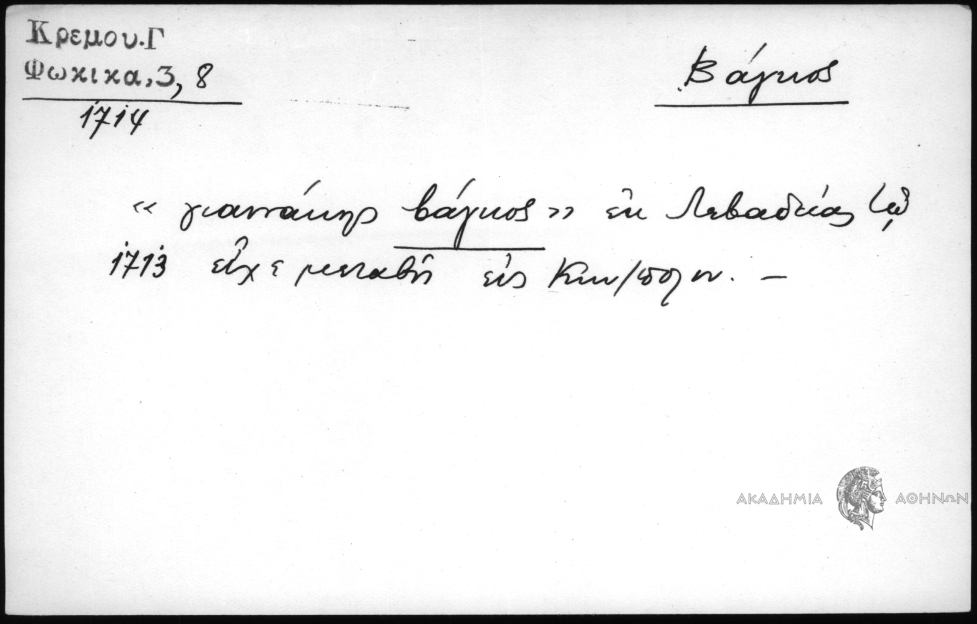 Κρεμου.Γ
Φωκικα,3, 8
1714
Βάγκος
« γιαννάκης βάγκος » ἐκ Λεβαδείας τῷ
1713 εἶχε μεταβῆ εἰς Κων/πολιν. –
ΑΚΑΔΗΜΙΑ ΑΘΗΝΩΝ